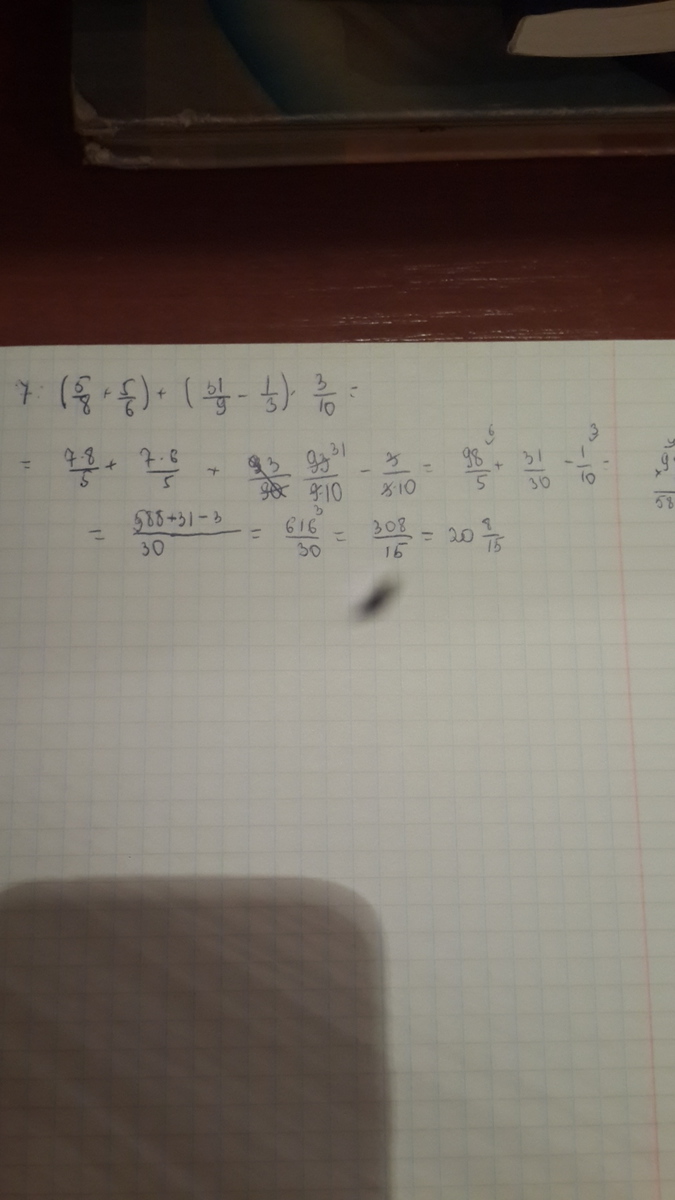 7 : (5/8 + 5/6) + (31/9 - 1/3) · 3/10 =
= 7·8/5 + 7·6/5 + 93/90 93 31/9·10 3 - 3/3·10 = 98 6/5 + 31/30 - 1 3/10 =
= 588+31-3/30 = 616/30 = 308/15 = 20 8/15
58